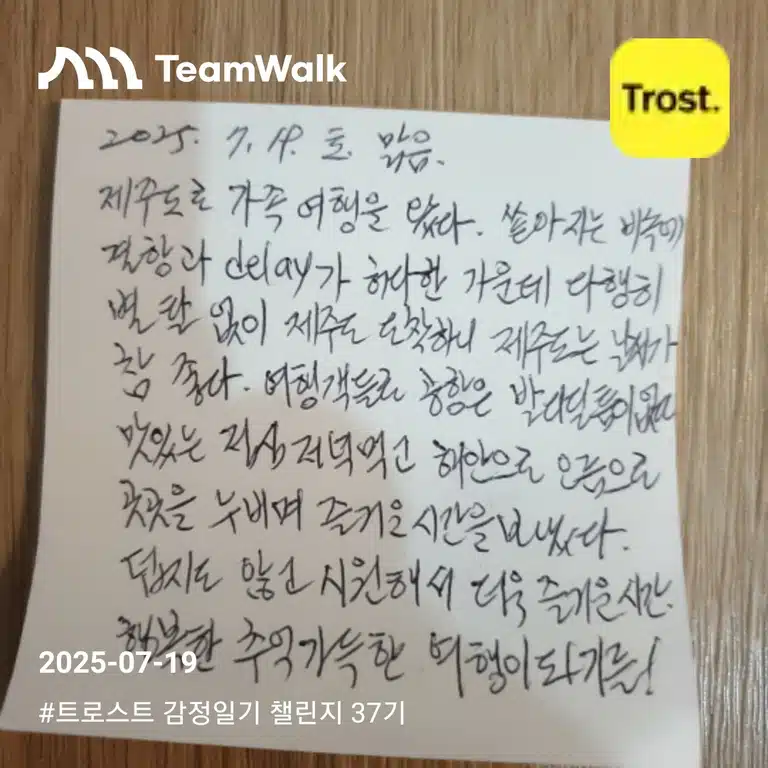 TeamWalk
Trost.
2025. 7. 19. 토. 맑음.
제주도로 가족 여행을 왔다. 쏟아지는 비속에
결항과 delay가 허다한 가운데 다행히
별 탈 없이 제주도 도착하니 제주도는 날씨가
참 좋다. 여행객들로 공항은 발 디딜 틈이 없다
맛있는 점심 저녁먹고 해안으로 오름으로
곳곳을 누비며 즐거운 시간을 보냈다.
덥지도 않고 시원해서 더욱 즐거운 시간.
행복한 추억가득한 여행이 되기를!
2025-07-19
#트로스트 감정일기 챌린지 37기